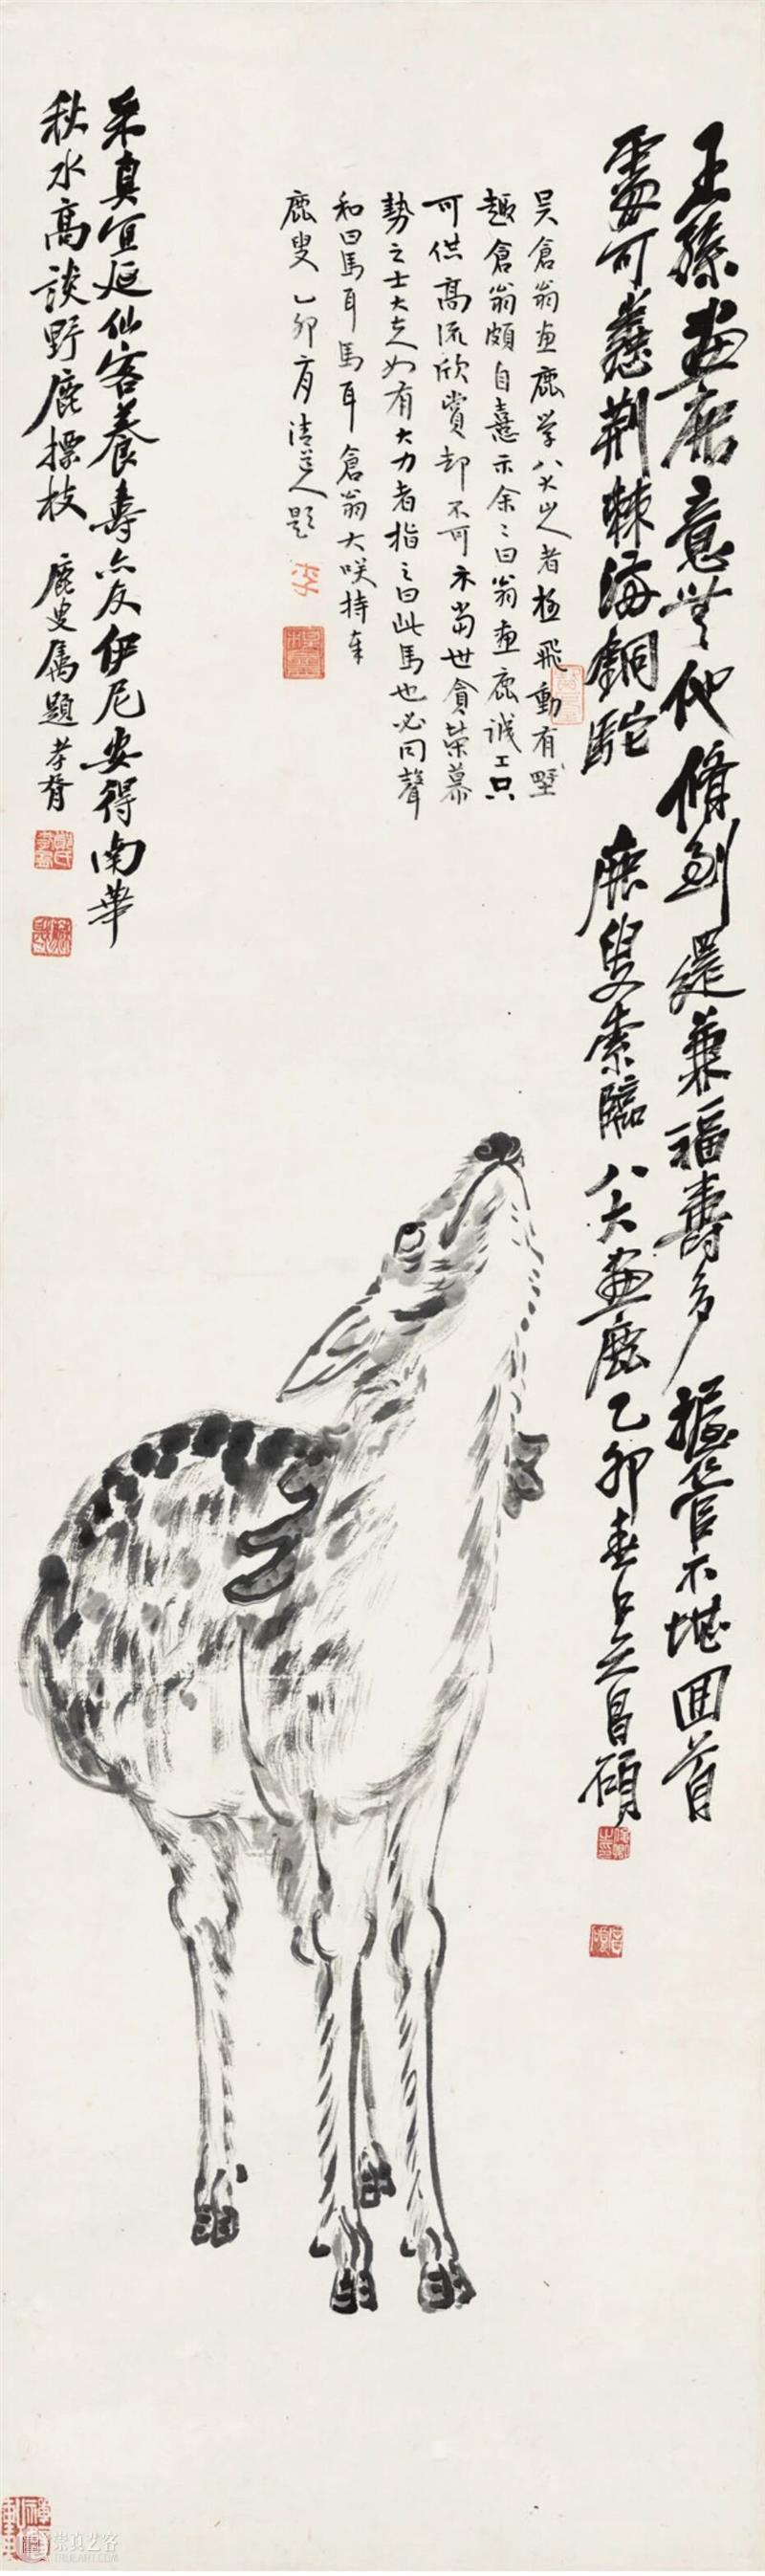 王孫畫鹿意無他脩到還兼福壽多握管不堪囬首
處可憐荆棘海銅駝
鹿叟索臨八大畫鹿乙卯春吳昌碩
吳倉翁畫鹿學八大山人者極飛動有野
趣倉翁頗自憙示余〻曰翁畫鹿誠工只
可供高流欣賞却不可示當世貪榮慕
勢之士大夫如有大力者指之曰此馬也必同聲
和曰馬耳馬耳倉翁大咲持奉
鹿叟 乙卯 清道人題
采真宜延仙客養壽亦友伊尼安得南華
秋水高談野鹿摽枝 鹿叟属題 孝胥
崇真艺客